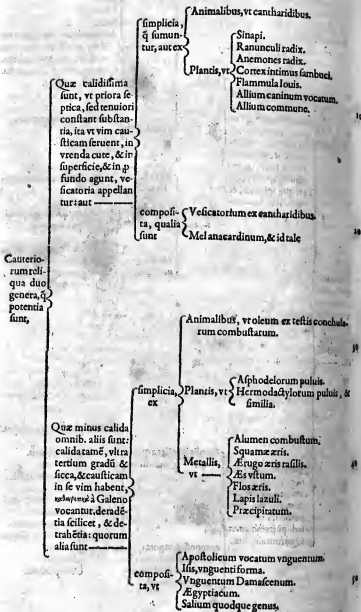 Cauterio-
rum reli-
qua duo
genera, q̃
potentia
sunt,
Quæ calidissima
sunt, vt priora se
ptica, sed tenuiori
constant substan-
tia, ita vt vim cau-
sticam seruent, in
vrenda cute, & in
superficie, & in ꝓ
fundo agunt, ve-
sicatoria appellan
tur: aut
simplicia,
q̃ sumun-
tur, aut ex
Animalibus, vt cantharidibus.
Plantis, vt
Sinapi.
Ranunculi radix.
Anemones radix.
Cortex intimus sambuci.
Flammula Iouis.
Allium caninum vocatum.
Allium commune.
composi-
ta, qualia
sunt
Vesicatorium ex cantharidibus.
Mel anacardinum, & id tale
Quæ minus calida
omnib. aliis sunt:
calida tamē, vltra
tertium gradū &
sicca, & causticam
in se vim habent,
à Galeno
vocantur, deradē-
tia scilicet, & de-
trahētia: quorum
alia sunt
simplicia,
ex
Animalibus, vt oleum ex testis conchula-
rum combustarum.
Plantis, vt
Asphodelorum puluis.
Hermodactylorum puluis, &
similia.
Metallis,
vt
Alumen combustum.
Squama æris.
Ærugo æris rasilis.
Æs vstum.
Flos æris.
Lapis lazuli.
Præcipitatum.
composi-
ta, vt
Apostolicum vocatum vnguentum.
Isis, vnguenti forma.
Vnguentum Damascenum.
Ægyptiacum.
Salium quodque genus.